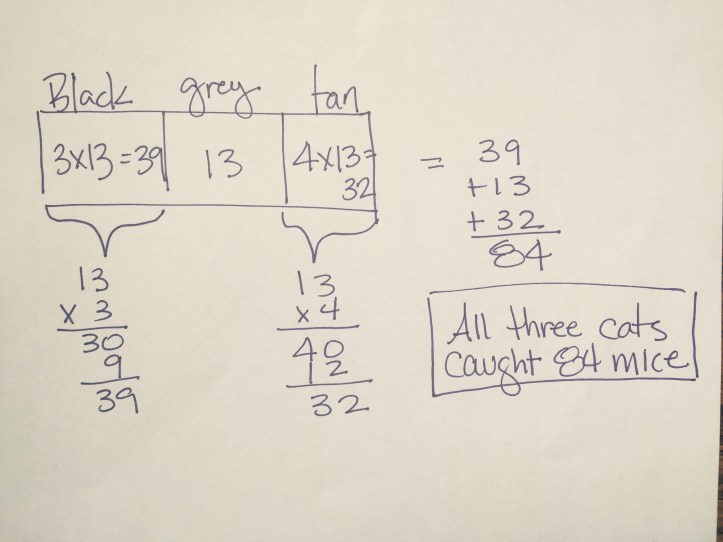 Black grey tan
3x13=39 13 4x13=
32
= 39
+13
+32
84
13
x 3
30
9
39
13
x 4
40
12
32
All three cats
caught 84 mice